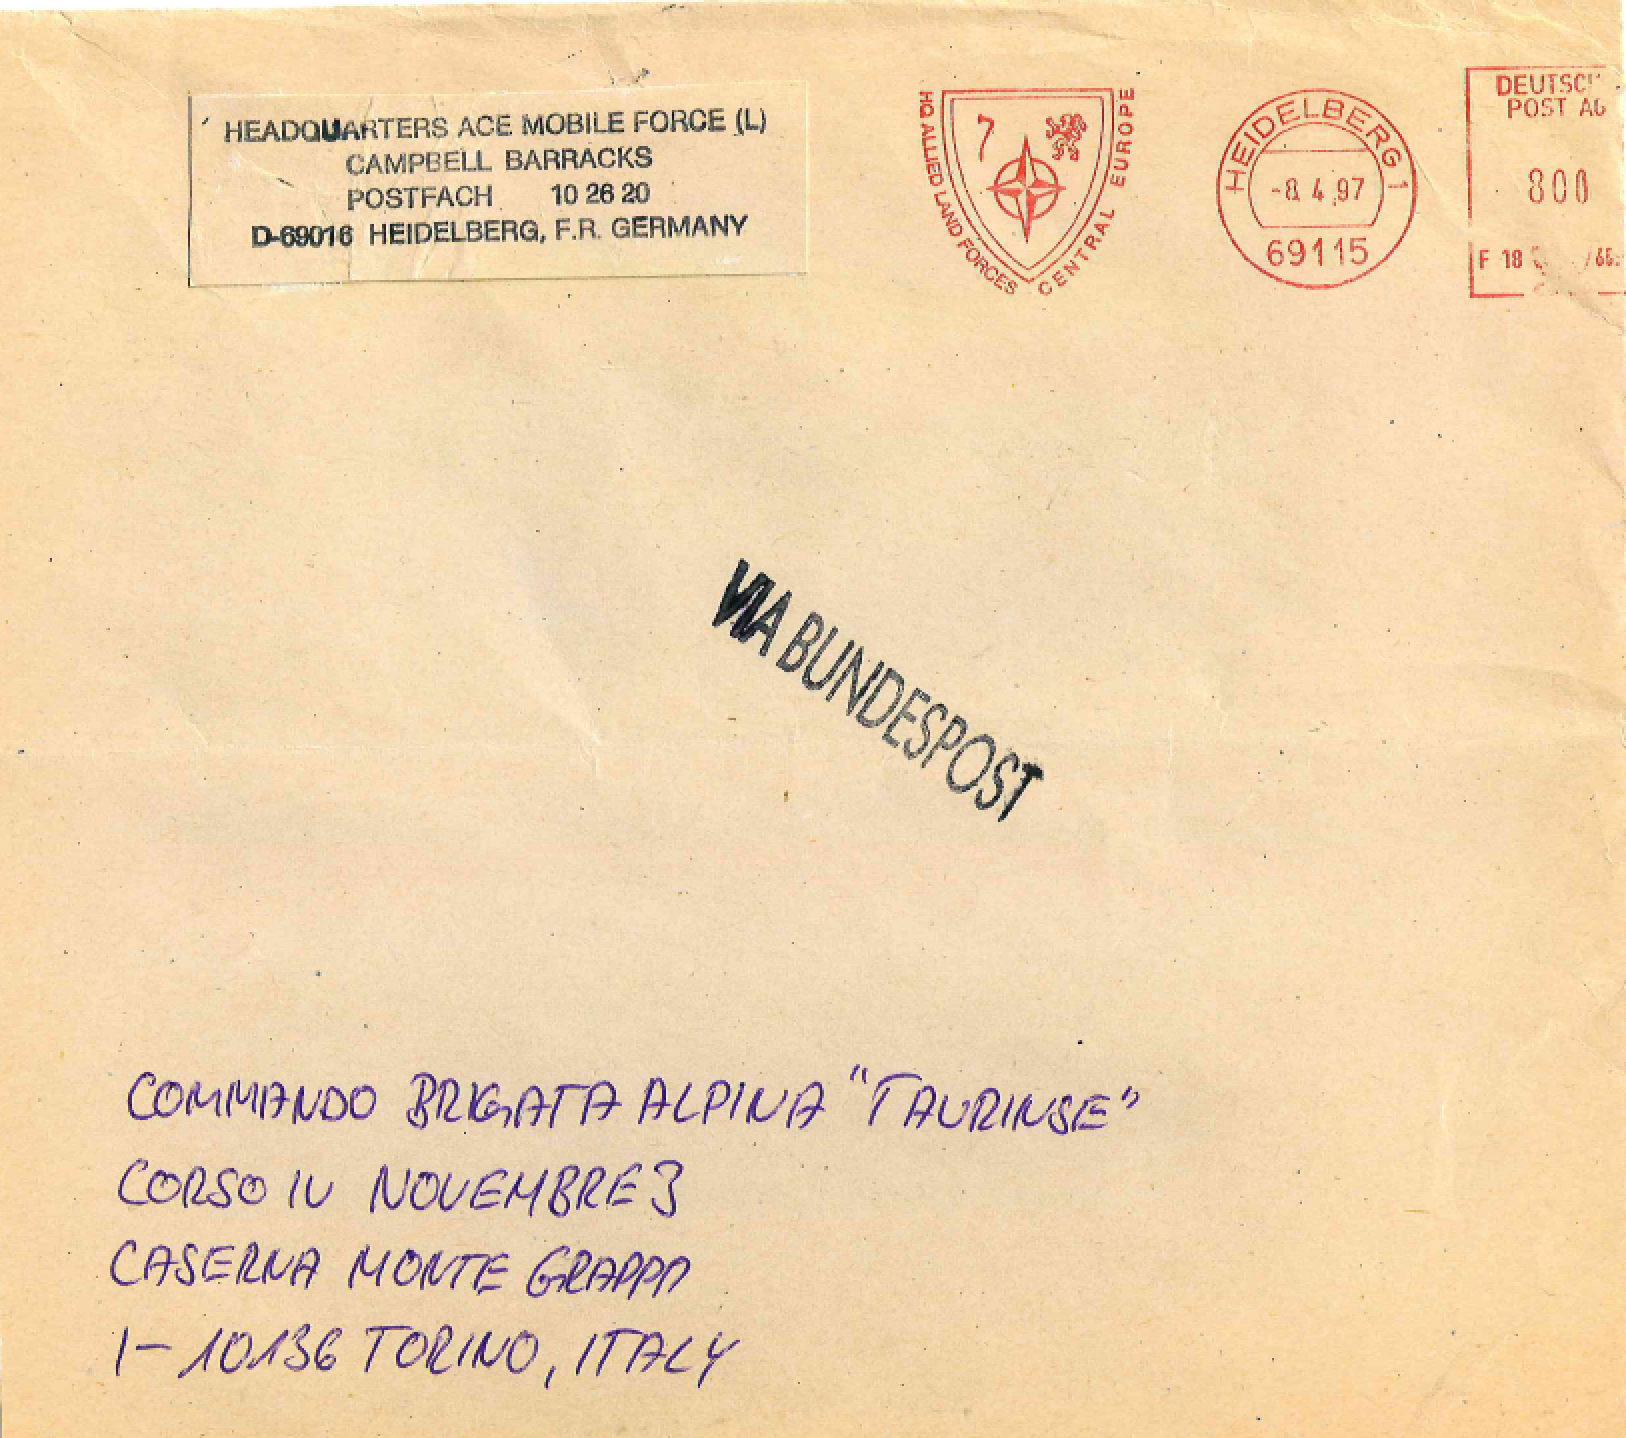 HEADQUARTERS ACE MOBILE FORCE (L)
CAMPBELL BARRACKS
POSTFACH 10 26 20
D-69016 HEIDELBERG, F.R. GERMANY
HQ ALLIED LAND FORCES CENTRAL EUROPE
HEIDELBERG 1
-8. 4.97
69115
DEUTSC
POST AG
800
F 18
VIA BUNDESPOST
COMMANDO BRIGATA ALPINA "TAURINSE"
CORSO IV NOVEMBRE 3
CASERNA MONTE GRAPPA
I-10136 TORINO, ITALY